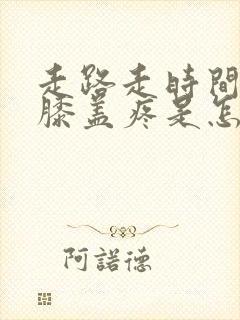 走路走時間
膝蓋疼是怎
阿諾德